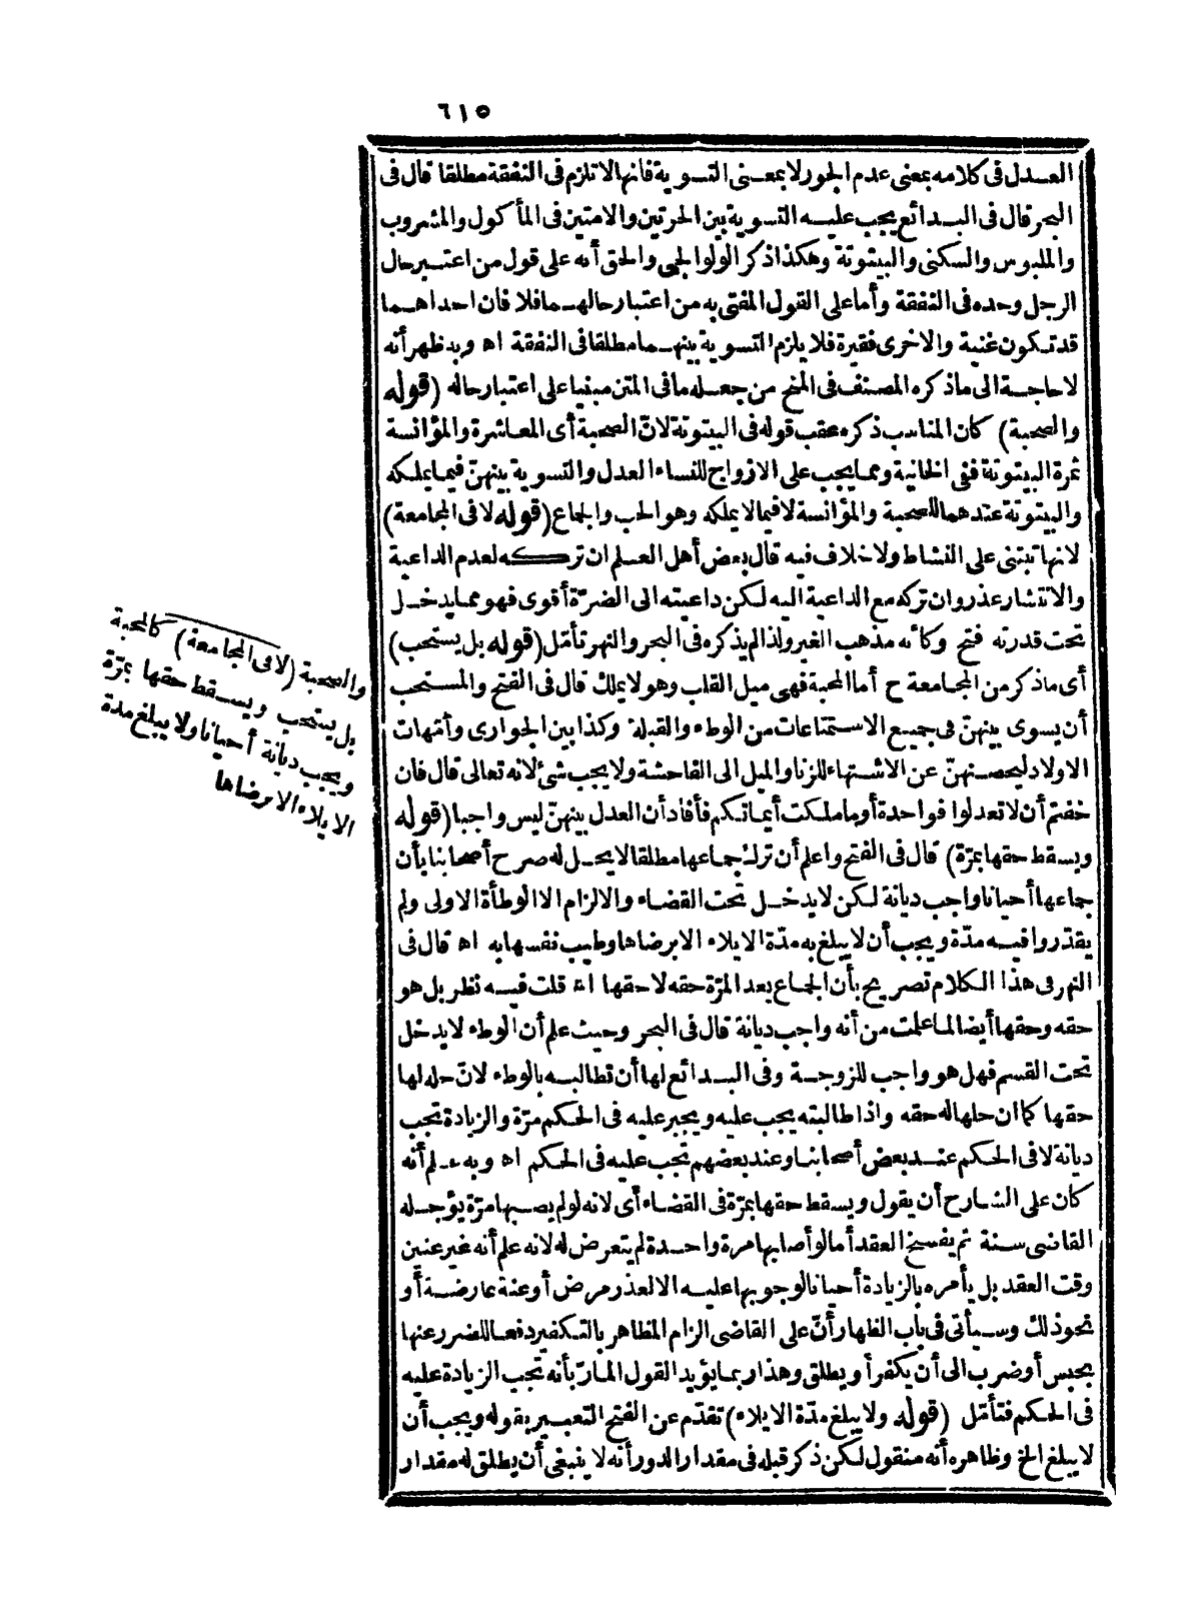 ٦١٥
العدل فى كلامه بمعنى عدم الجور لا بمعنى التسوية فانها لا تلزم فى النفقة مطلقا قال فى
البحر قال فى البدائع يجب عليه التسوية بين الحرتين والامتين فى المأكول والمشروب
والملبوس والسكنى والبيتوتة وهكذا ذكر الولوالجى والحق أنه على قول من اعتبر حال
الرجل وحده فى النفقة وأما على القول المفتى به من اعتبار حالهما فلا فان احداهما
قد تكون غنية والاخرى فقيرة فلا يلزم التسوية بينهما مطلقا فى النفقة اه وبه ظهر أنه
لا حاجة الى ما ذكره المصنف فى المنح من جعله ما فى المتن مبنيا على اعتبار حاله (قوله
والصحبة) كان المناسب ذكره عقب قوله فى البيتوتة لانّ الصحبة أى المعاشرة والمؤانسة
ثمرة البيتوتة ففى الخانية ومما يجب على الازواج للنساء العدل والتسوية بينهنّ فيما يملكه
والبيتوتة عندهما للصحبة والمؤانسة لا فيما لا يملكه وهو الحب والجماع (قوله لا فى المجامعة)
لانها تبتنى على النشاط ولا خلاف فيه قال بعض أهل العلم ان تركه لعدم الداعية
والانتشار عذر وان تركه مع الداعية اليه لكن داعيته الى الضرّة أقوى فهو مما يدخل
تحت قدرته فتح وكأنه مذهب الغير ولذا لم يذكره فى البحر والنهر تأمّل (قوله بل يستحب)
أى ما ذكر من المجامعة ح أما المحبة فهى ميل القلب وهو لا يملك قال فى الفتح والمستحب
أن يسوى بينهنّ فى جميع الاستمتاعات من الوطء والقبلة وكذا بين الجوارى وأمّهات
الاولاد ليحصنهنّ عن الاشتهاء للزنا والميل الى الفاحشة ولا يجب شئ لانه تعالى قال فان
خفتم أن لا تعدلوا فواحدة أو ما ملكت أيمانكم فأفاد أن العدل بينهنّ ليس واجبا (قوله
ويسقط حقها بمرّة) قال فى الفتح واعلم أن ترك جماعها مطلقا لا يحل له صرح أصحابنا بأن
جماعها أحيانا واجب ديانة لكن لا يدخل تحت القضاء والالزام الا الوطأة الاولى ولم
يقدّروا فيه مدّة ويجب أن لا يبلغ به مدّة الايلاء الا برضاها وطيب نفسها به اه قال فى
النهر فى هذا الكلام تصريح بأن الجماع بعد المرّة حقه لا حقها اه قلت فيه نظر بل هو
حقه وحقها أيضا لما علمت من أنه واجب ديانة قال فى البحر وحيث علم أن الوطء لا يدخل
تحت القسم فهل هو واجب للزوجة وفى البدائع لها أن تطالبه بالوطء لانّ حله لها
حقها كما ان حلها له حقه واذا طالبته يجب عليه ويجبر عليه فى الحكم مرّة والزيادة تجب
ديانة لا فى الحكم عند بعض أصحابنا وعند بعضهم تجب عليه فى الحكم اه وبه علم أنه
كان على الشارح أن يقول ويسقط حقها بمرّة فى القضاء أى لانه لو لم يصبها مرّة يؤجله
القاضى سنة ثم يفسخ العقد أما لو أصابها مرة واحدة لم يتعرض له لانه علم أنه غير عنين
وقت العقد بل يأمره بالزيادة أحيانا لوجوبها عليه الا لعذر مرض أو عنة عارضة أو
نحو ذلك وسيأتى فى باب الظهار أنّ على القاضى الزام المظاهر بالتكفير دفعا للضرر عنها
بحبس أو ضرب الى أن يكفر أو يطلق وهذا ربما يؤيد القول المارّ بأنه تجب الزيادة عليه
فى الحكم فتأمّل (قوله ولا يبلغ مدّة الايلاء) تقدّم عن الفتح التعبير بقوله ويجب أن
لا يبلغ الخ وظاهره أنه منقول لكن ذكر قبله فى مقدار الدور أنه لا ينبغى أن يطلق له مقدار
والصحبة (لا فى المجامعة) كالمحبة
بل يستحب ويسقط حقها بمرّة
ويجب ديانة أحيانا ولا يبلغ مدة
الايلاء الا برضاها